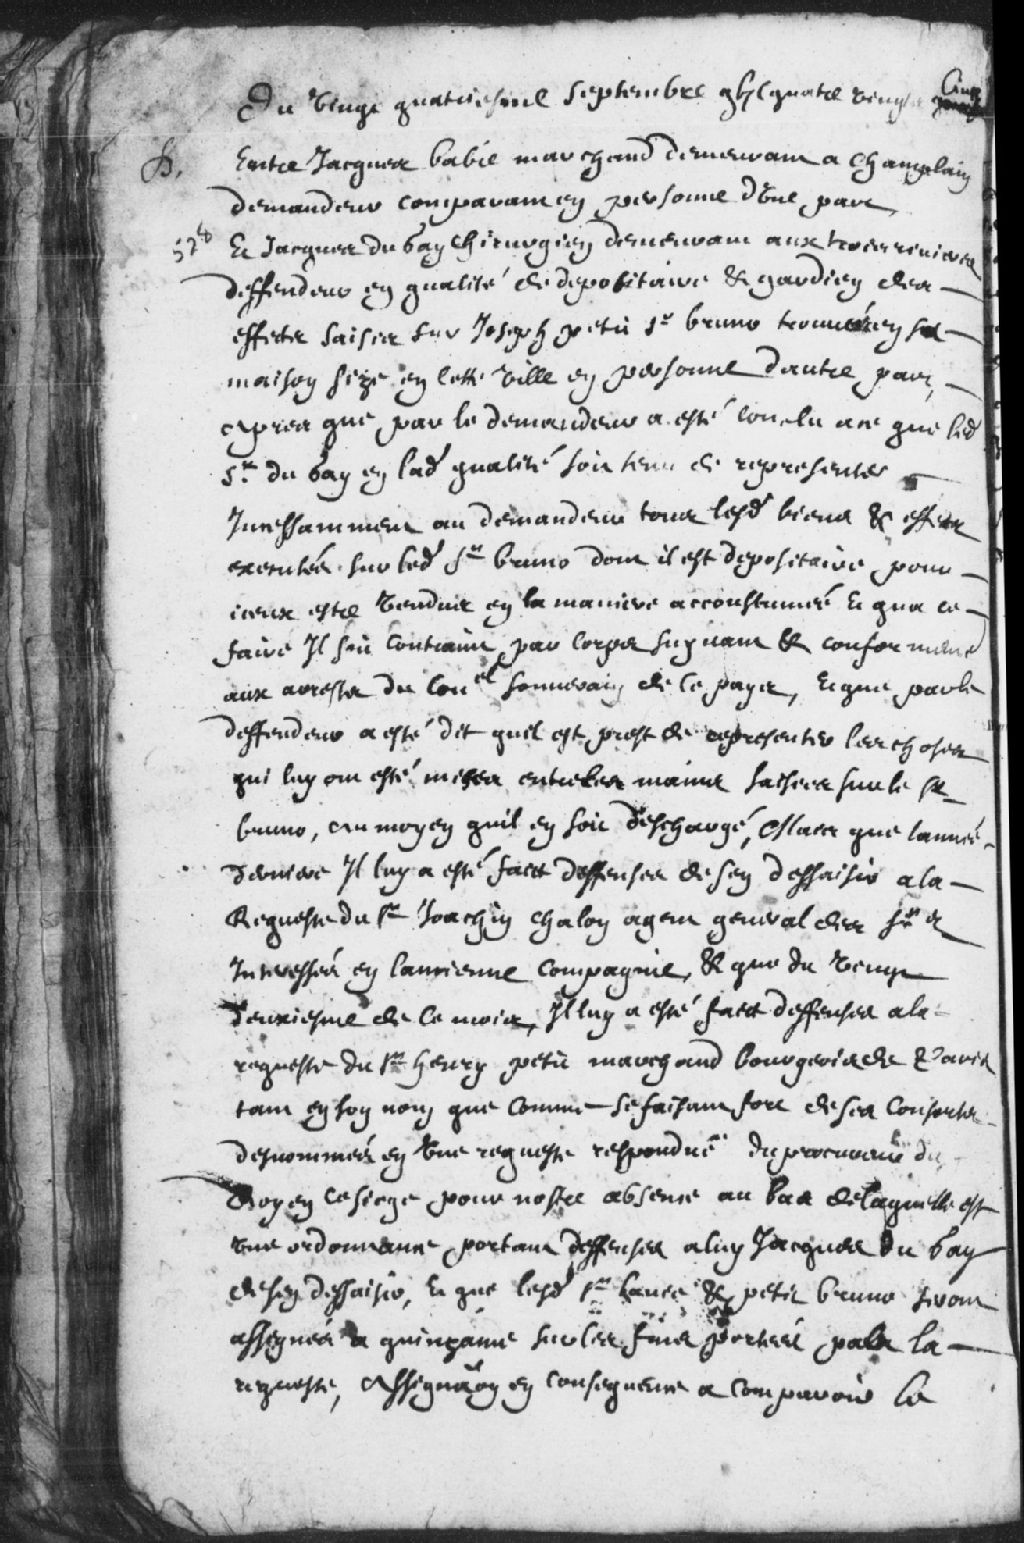 Du Vingt quatriesme Septembre gbjc quatre Vingts Cinq
Entre Jacques babie marchand demeurant a Champlain
demandeur comparant en personne d'Une part
578 Et Jacques du bay Chirurgien demeurant aux trois rivieres
deffendeur en qualité de depositaire & gardien des
effects saisis sur Joseph petit sr bruno trouvés en sa
maison size en cette Ville en personne d'autre part,
apres que par le demandeur a esté conclu ace que led
Sr. du bay en lad qualité soit tenu de representer
Incessamment au demandeur tous lesd biens & effects
executés sur led Sr bruno dont il est depositaire pour
iceux estre Vendus en la maniere accoustumée Et qua ce
faire Il soit Contraint par Corps suyvant & conformement
aux arrests du Conel souverain de ce pays, Et que par le
deffendeur a esté dit quil est prest de representer les choses
qui luy ont esté mises entre les mains saisies sur le sr
bruno, au moyen quil en soit deschargé, Mais que l'année
derniere Il luy a esté faict deffenses de s'en dessaisir a la
Requeste du Sr Joachin Chalon agent general des srs
Interessés en l'ancienne Compagnie, & que du Vingt
deuxiesme de ce mois, Il luy a esté faict deffenses a la
requeste du Sr henry petit marchand bourgeois de Paris
tant en son nom que comme se faisant fort de ses Consorts
desnommés en Une requeste respondue du procureur du
Roy en ce siege pour nostre absence au bas de laquelle est
Une ordonnance portant deffenses a luy Jacques du bay
de s'en dessaisir, Et que lesd Srs & petit bruno seront
assignés a quinzaine sur les fins portées par la
requeste, Assignaon en consequence a comparoir le